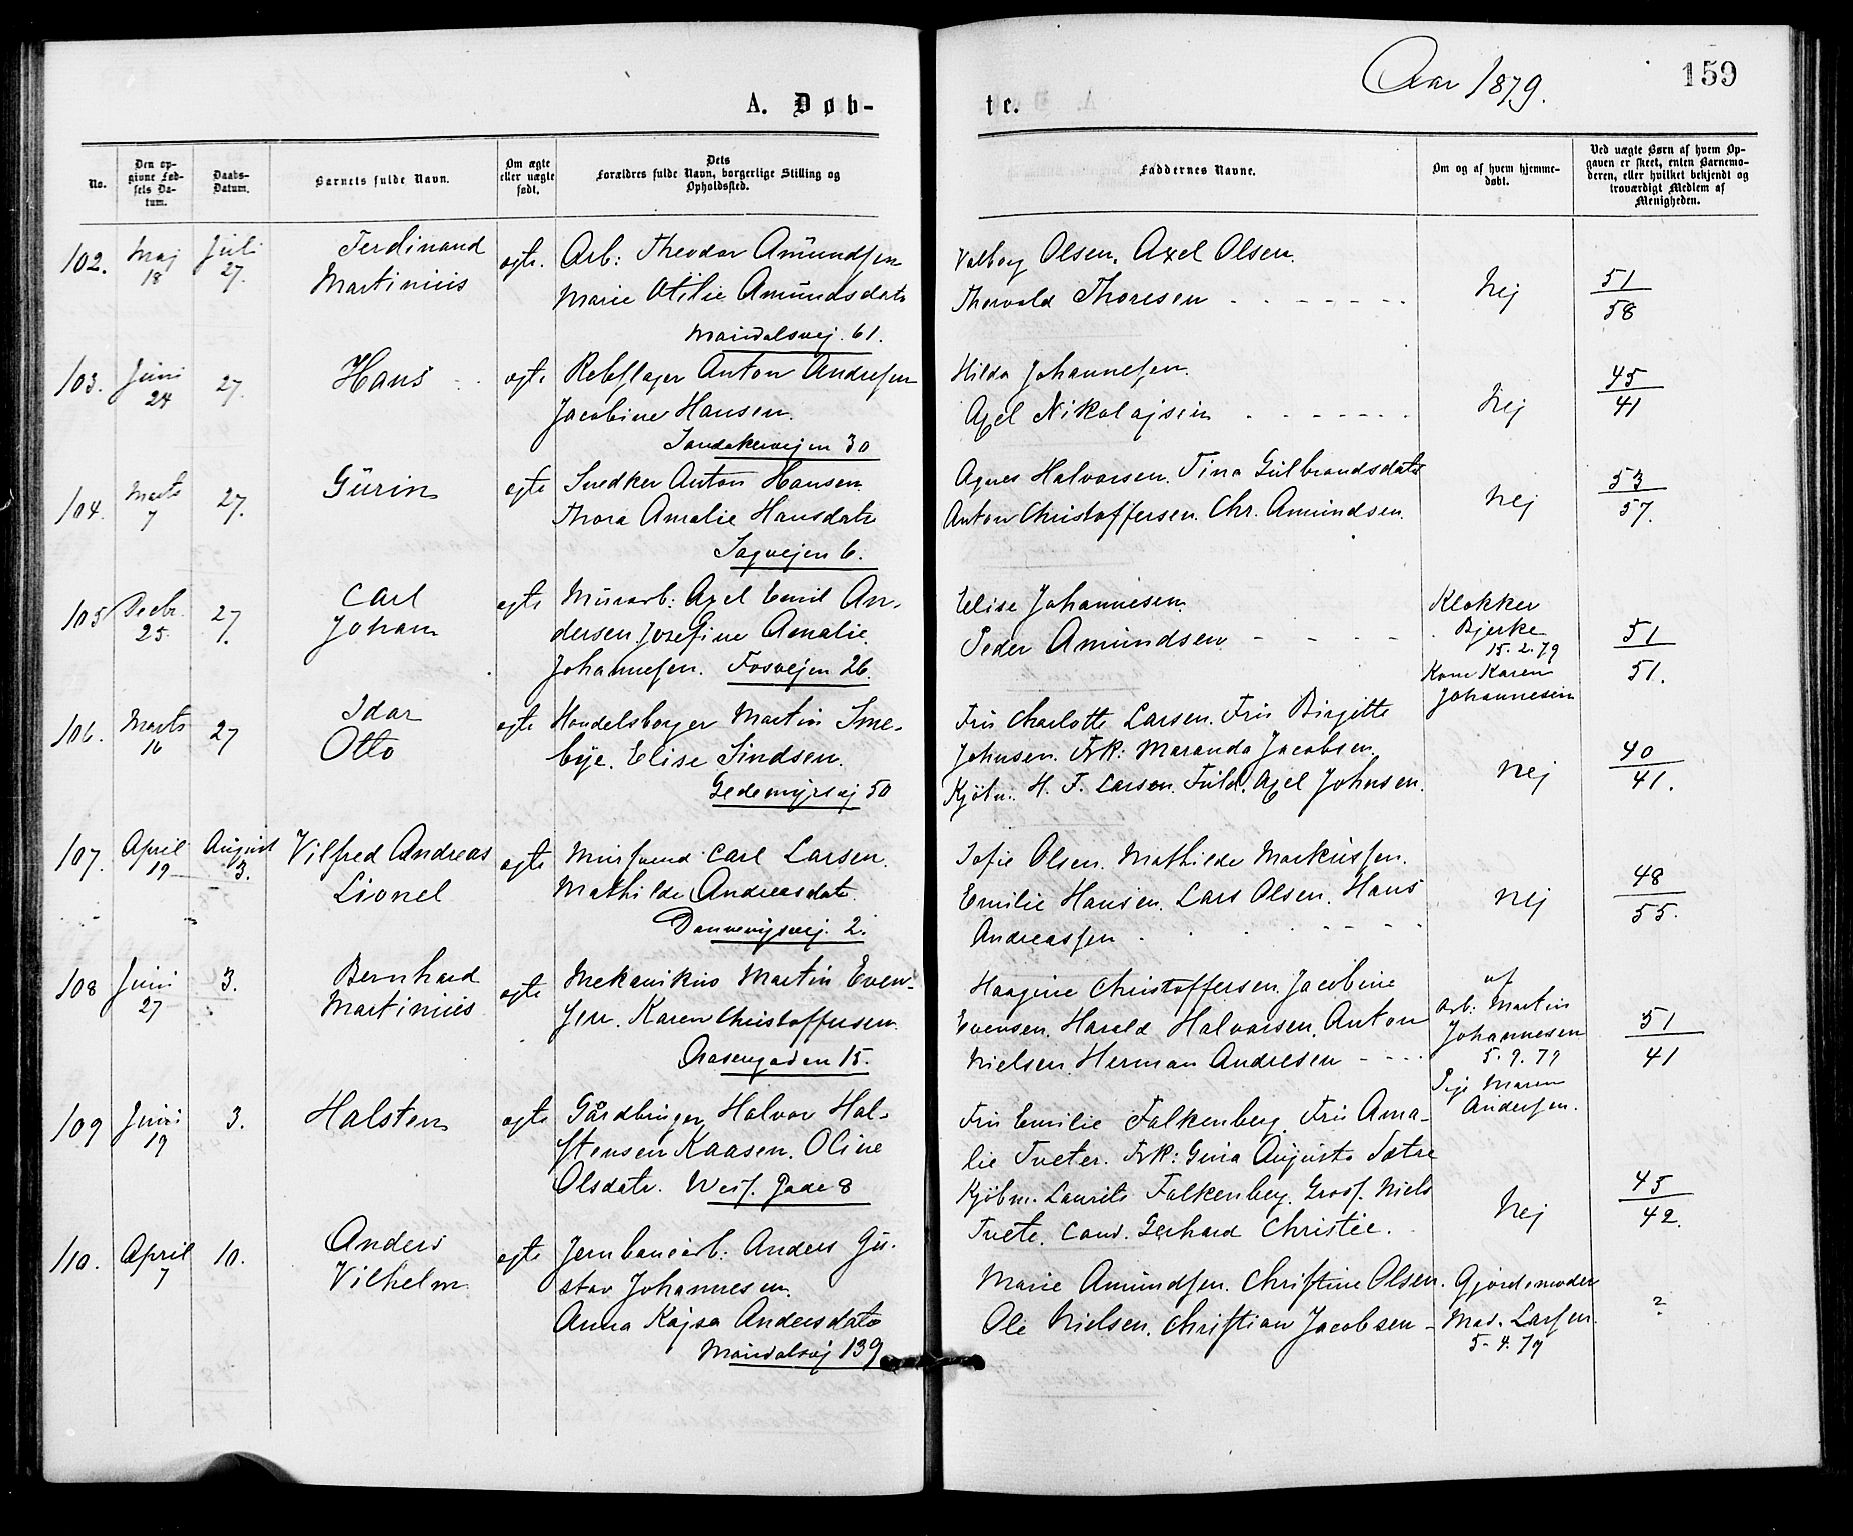 Aar 1879.
159
A. Døb-
te.
No.
Den op-
givne Fød-
sels Da-
tum.
Daabs-
Datum.
Barnets fulde Navn.
Om ægte
eller uægte
født.
Dets
Forældres fulde Navn, borgerlige Stilling og
Opholdssted.
Faddernes Navne.
Om og af hvem hjemme-
døbt.
Ved uægte Børn af hvem Op-
gaven er skeet, enten Barnemo-
deren, eller hvilket bekjendt og
troværdigt Medlem af
Menigheden.
102.
Maj
18
Juli
27.
Ferdinand
Martinius
egte.
Arb: Theodor Amundsen
Marie Otilie Amundsdatr
Maridalsvej. 61.
Valborg Olsen. Axel Olsen.
Thorvald Thoresen
Nej
51
58
103.
Juni
24
27.
Hans
egte
Rebslager Anton Andresen
Jacobine Hansen.
Sandakervejen 30
Hilda Johannesen.
Axel Nikolajsen
Nej
45
41
104.
Marts
7
27.
Gurin
egte
Snedker Anton Hansen.
Thora Amalie Hansdatr
Sagvejen 6.
Agnes Halvorsen. Tina Gulbrandsdatr
Anton Christoffersen. Chr. Amundsen.
Nej
53
57.
105
Decbr.
25.
27
Carl
Johan
egte
Murarb: Axel Emil An-
dersen. Josefine Amalie
Johannesen. Fosvejen 26.
Elise Johannesen.
Peder Amundsen
Klokker
Bjerke
15.2.79
Kone Karen
Johannesen
51
51.
106.
Marts
16
27
Idar
Otto
egte
Handelsborger Martin Sme-
bye. Elise Sindsen.
Gedemyrsvej 50
Fru Charlotte Larsen. Fru Birgitte
Johnsen. Frk: Maranda Jacobsen.
Kjøbm. H. F. Larsen. Fuld. Axel Johnsen.
nej
40
41.
107.
April
19
August
3.
Vilfred Andreas
Lionel
egte
Mursvend Carl Larsen.
Mathilde Andreasdatr.
Dannevigsvej. 2.
Sofie Olsen. Mathilde Markussen.
Emilie Hansen. Lars Olsen. Hans
Andreassen
nej
48
55.
108
Juni
27
3.
Bernhard
Martinius
egte
Mekanikus Martin Even-
sen. Karen Christoffersen.
Aasengaden 15.
Haagine Christoffersen. Jacobine
Evensen. Harald Halvorsen. Anton
Nielsen. Herman Andresen
af
Arb: Martin
Johannesen
5.9.79
Pige Maren
Andersen.
51
41
109
Juni
19
3.
Halsten
egte
Gårdbruger Halvor Hal-
stensen Kaasen. Oline
Olsdatr. Wess. Gade 8
Fru Emilie Falkenberg. Fru Ama-
lie Tveter. Frk: Gina Augusta Sætre
Kjøbm. Laurits Falkenberg. Gross. Niels
Tvete. Cand. Gerhard Christie.
Nej
45
42.
110.
April
7
10.
Anders
Vilhelm
egte
Jernbanearb: Anders Gu-
stav Johannesen.
Anna Kajsa Andersdatr
Maridalsvej 139
Marie Amundsen. Christine Olsen.
Ole Nielsen. Christian Jacobsen
Gjordemoder
Mad. Larsen.
5.4.79
?